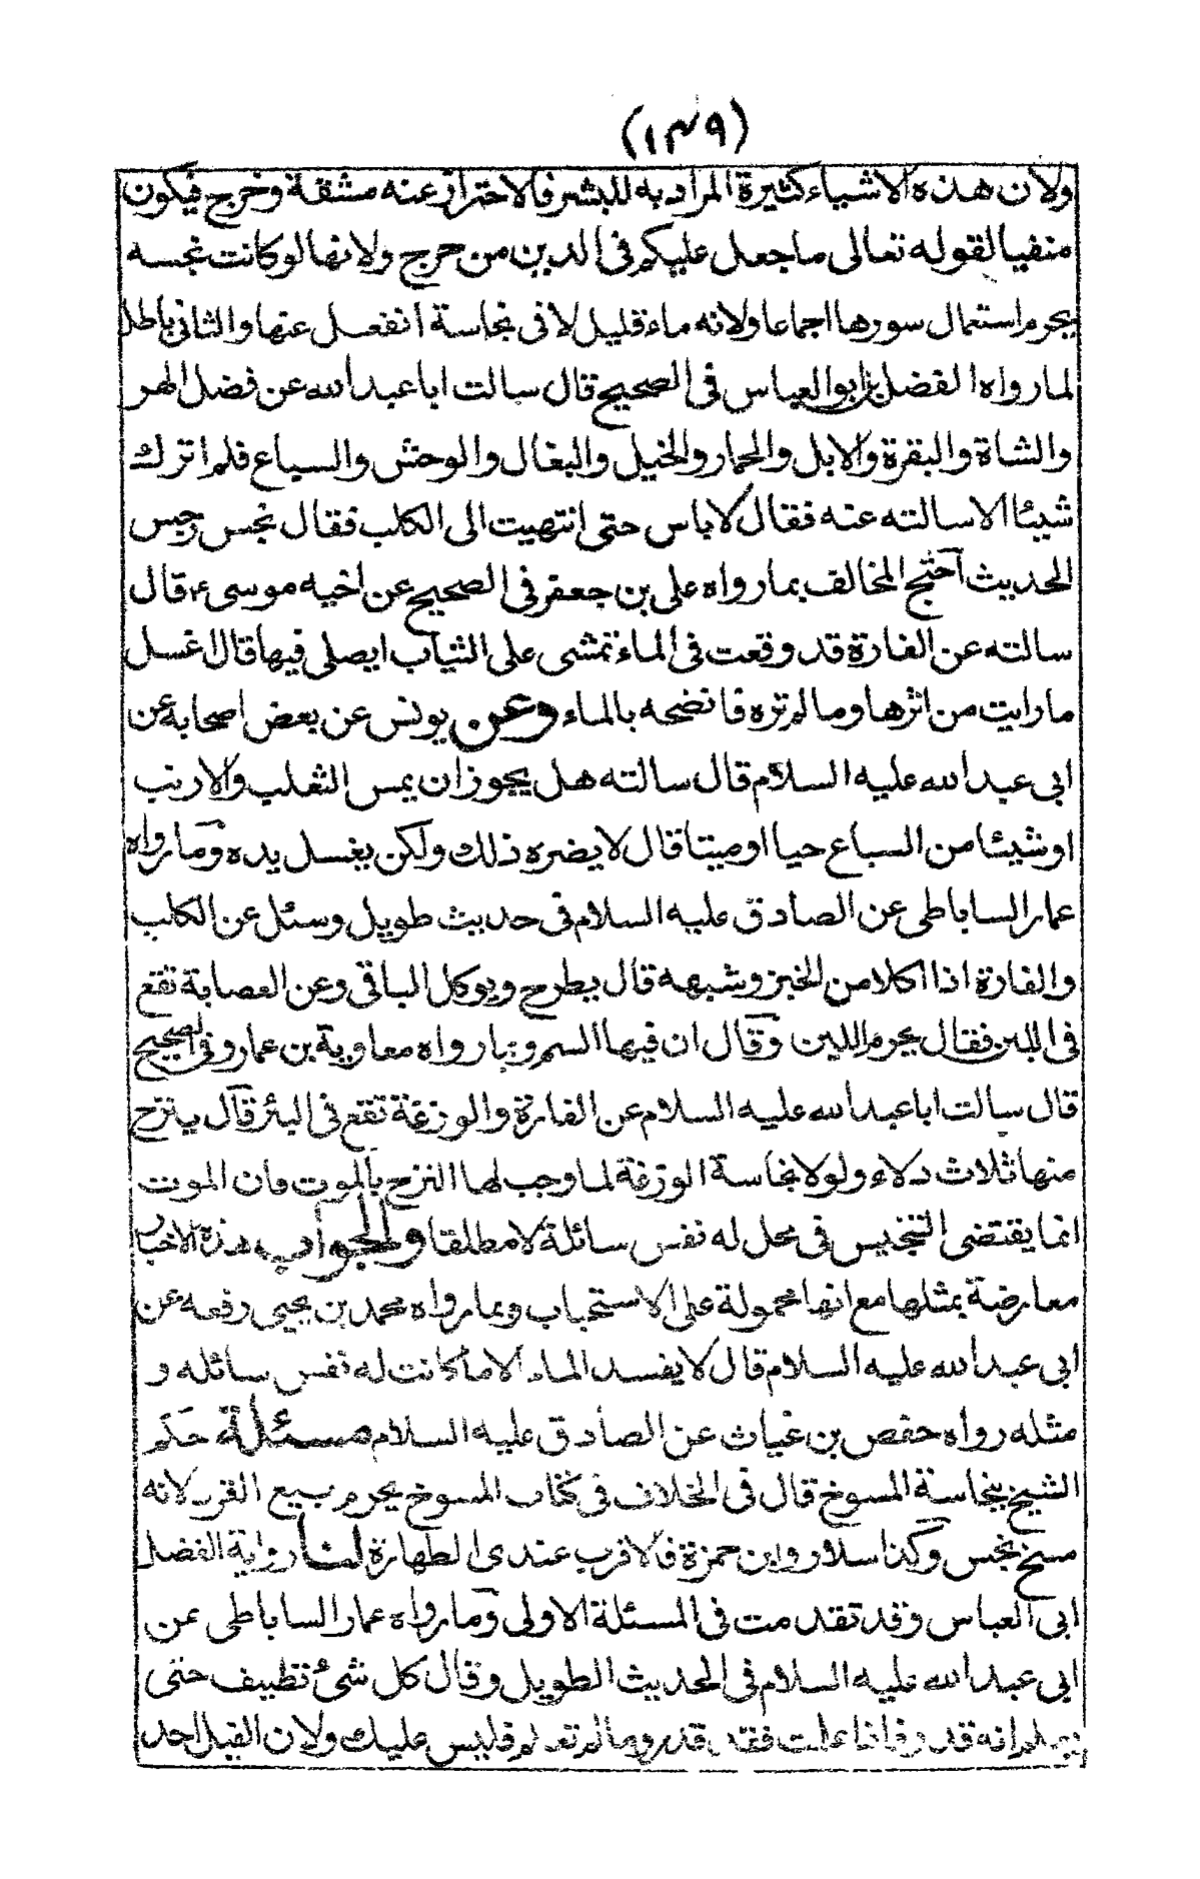 (١٣٩)
ولان هذه الاشياء كثيرة المراد به للبشر فالاحتراز عنه مشقة وخرج فيكون
منفيا لقوله تعالى ما جعل عليكم فى الدين من حرج ولانها لو كانت نجسه
يحرم استعمال سورها اجماعا ولانه ماء قليل لاقى نجاسة انفعل عنها والثانى باطل
لما رواه الفضل ابو العباس فى الصحيح قال سالت ابا عبد الله عن فضل الهر
والشاة والبقرة والابل والحمار والخيل والبغال والوحش والسباع فلم اترك
شيئا الا سالته عنه فقال لا باس حتى انتهيت الى الكلب فقال نجس رجس
الحديث احتج المخالف بما رواه على بن جعفر فى الصحيح عن اخيه موسىء قال
سالته عن الفارة قد وقعت فى الماء تمشى على الثياب ايصلى فيها قال اغسل
ما رايت من اثرها وما لم تره فانضحه بالماء وعن يونس عن بعض اصحابه عن
ابى عبد الله عليه السلام قال سالته هل يجوز ان يمس الثعلب والارنب
او شيئا من السباع حيا او ميتا قال لا يضره ذلك ولكن يغسل يده وما رواه
عمار الساباطى عن الصادق عليه السلام فى حديث طويل وسئل عن الكلب
والفارة اذا اكلا من الخبز وشبهه قال يطرح ويوكل الباقى وعن العصاية تقع
فى اللبن فقال يحرم اللبن وقال ان فيها السم وبما رواه معاوية بن عمار وفى الصحيح
قال سالت ابا عبد الله عليه السلام عن الفارة والوزغة تقع فى البئر قال ينزح
منها ثلاث دلاء ولولا نجاسة الوزغة لما وجب لها النزح بالموت فان الموت
انما يقتضى التنجيس فى محل له نفس سائلة لا مطلقا والجواب هذه الاخبار
معارضة بمثلها مع انها محمولة على الاستحباب وبما رواه محمد بن يحيى رفعه عن
ابى عبد الله عليه السلام قال لا يفسد الماء الا ما كانت له نفس سائله و
مثله رواه حفص بن غياث عن الصادق عليه السلام مسئلة حكم
الشيخ بنجاسة المسوخ قال فى الخلاف فى كتاب المسوخ يحرم بيع القرد لانه
مسخ نجس وكذا سلار وابن حمزة فالاقرب عندى الطهارة لنا رواية الفضل
ابى العباس وقد تقدمت فى المسئلة الاولى وما رواه عمار الساباطى عن
ابى عبد الله عليه السلام فى الحديث الطويل وقال كل شئ نظيف حتى
يعلم انه قذر فاذا علمت فقد قذر وما لم تعلم فليس عليك ولان الفيل احد